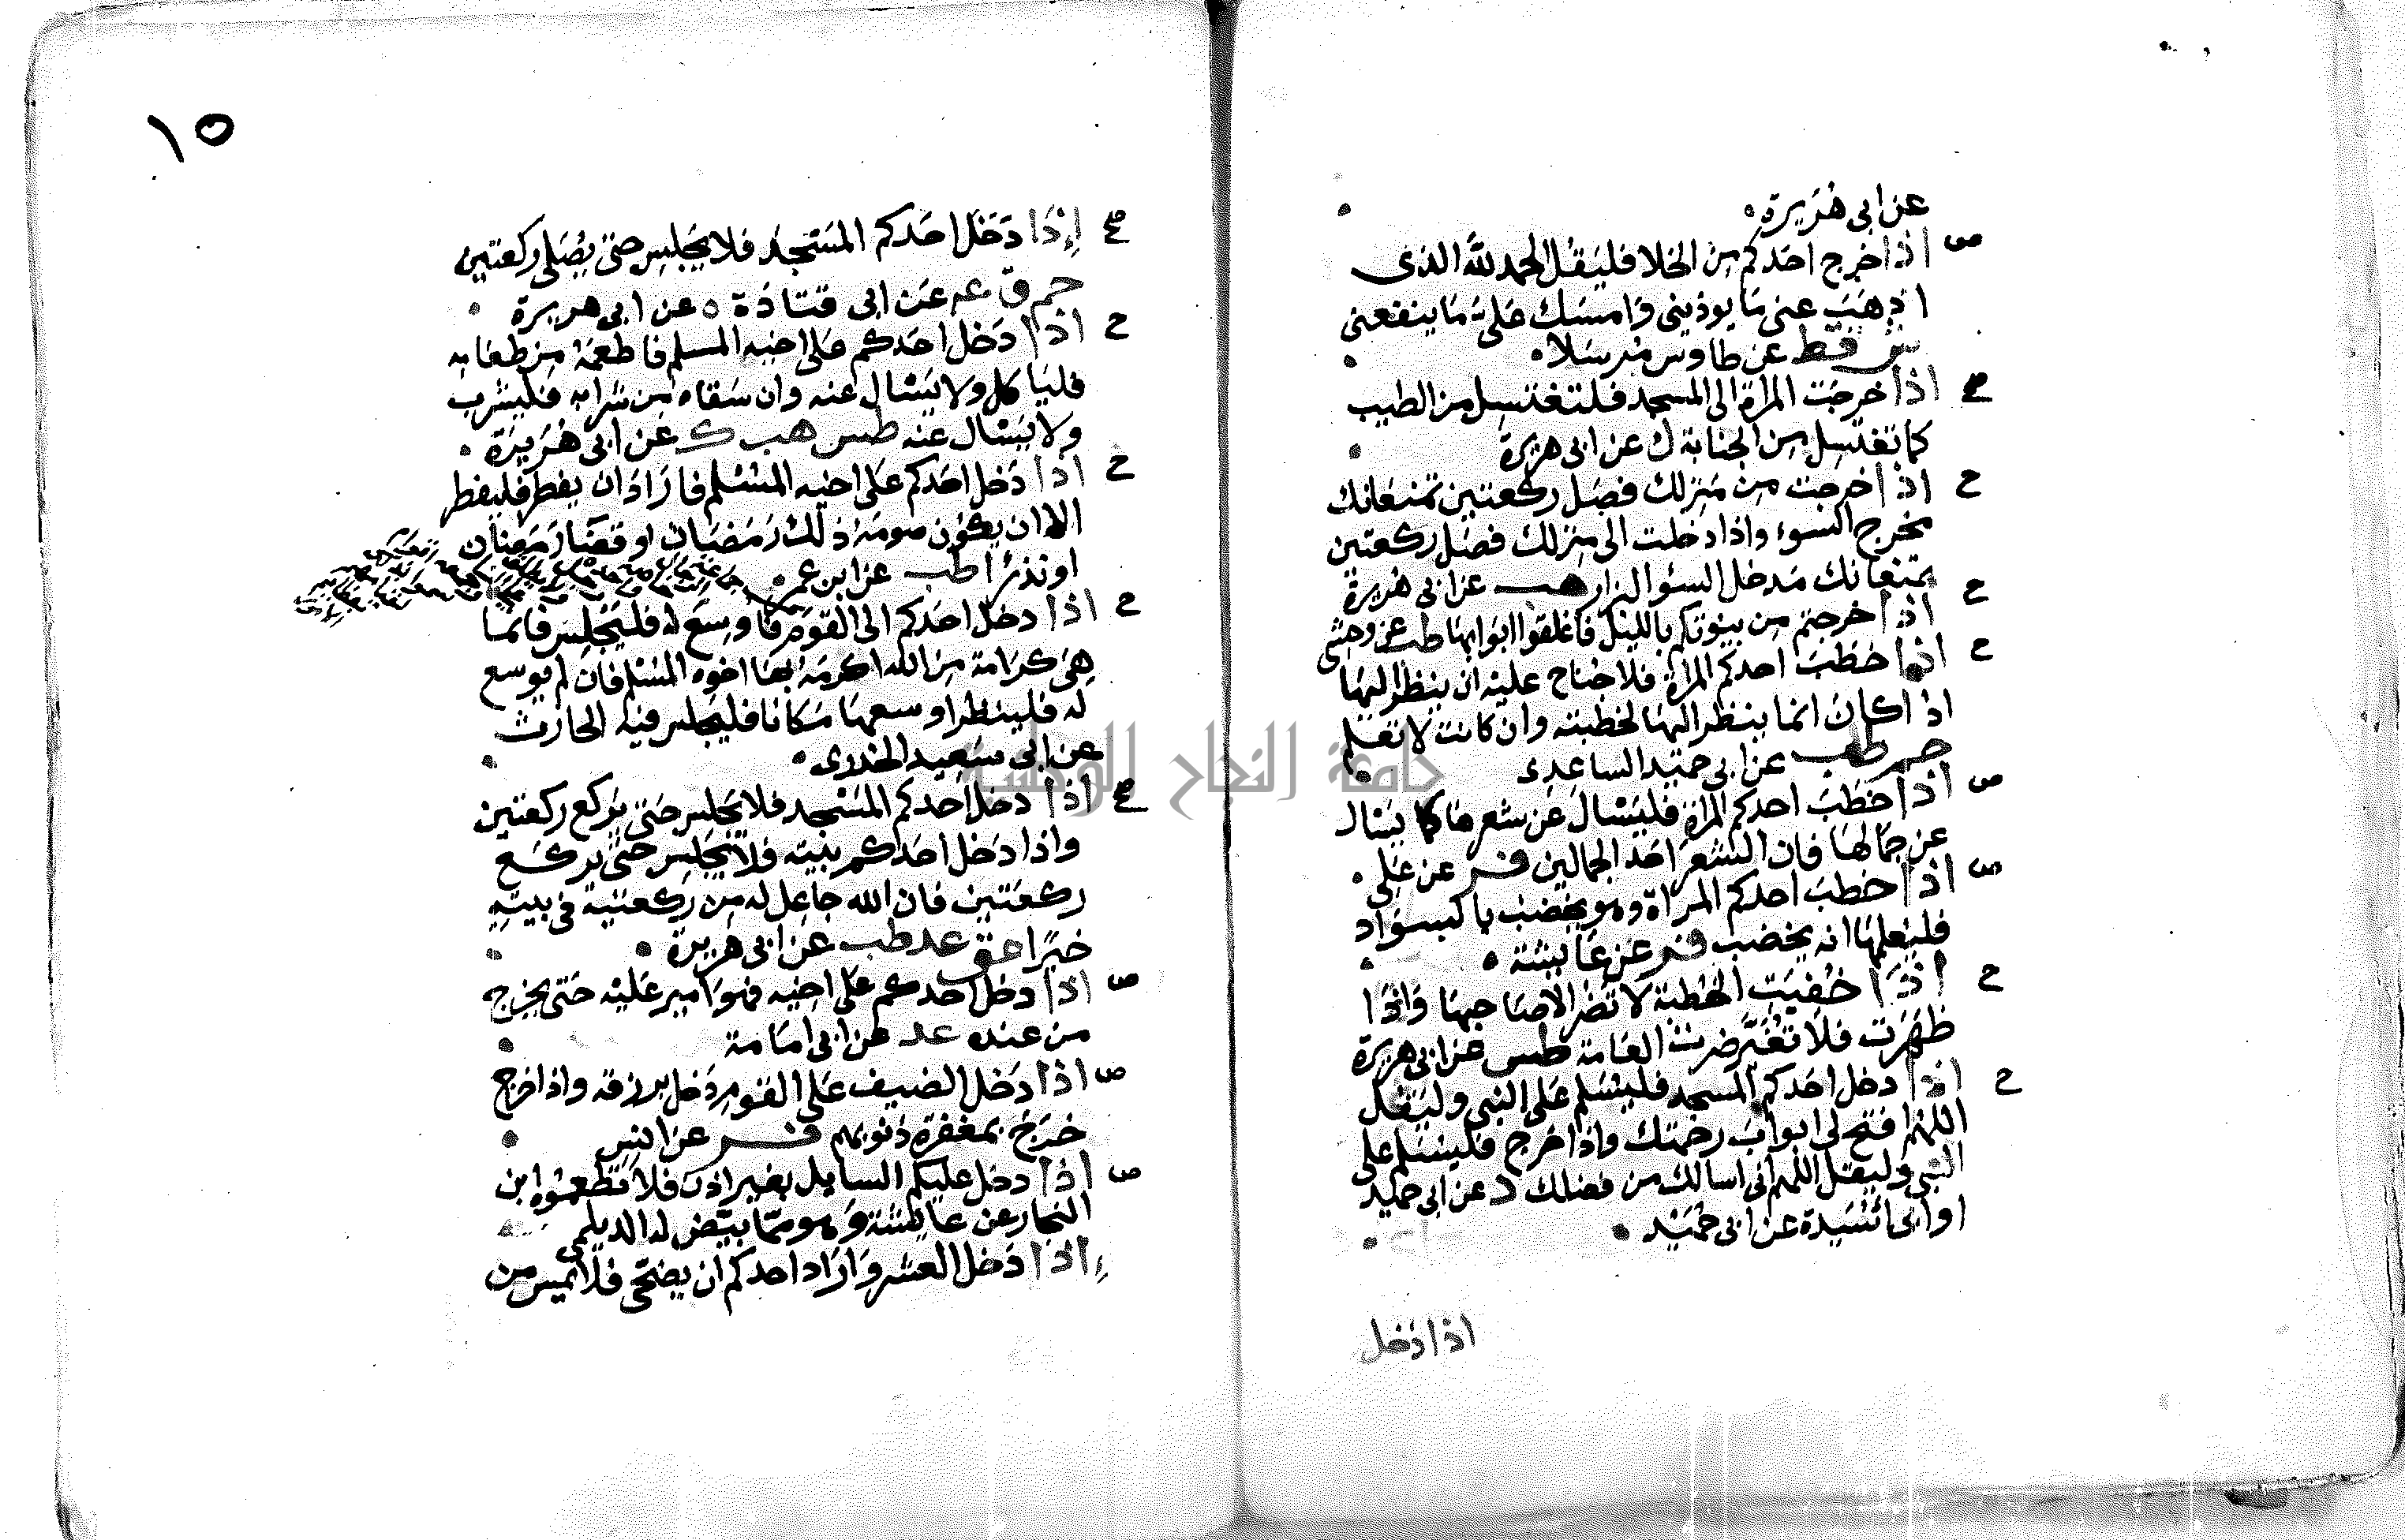 عن ابى هريرة
ص اذا خرج احدكم من الخلا فليقل الحمد لله الذى
اذهب عنى ما يوذينى وامسك على ما ينفعنى
ش قط عن طاوس مرسلا
صح اذا خرجت المراة الى المسجد فلتغتسل من الطيب
كما تغتسل من الجنابة ن عن ابى هريرة
ح اذا خرجت من منزلك فصل ركعتين تمنعانك
مخرج السوء واذا دخلت الى منزلك فصل ركعتين
يمنعانك مدخل السؤ البزار هب عن ابى هريرة
ح اذا خرجتم من بيوتكم بالليل فاغلقوا ابوابها طب عن وحشى
ح اذا خطب احدكم المراة فلا جناح عليه ان ينظر اليها
اذا كان انما ينظر اليها لخطبته وان كانت لا تعلم
حم طب عن ابى حميد الساعدى
ص اذا خطب احدكم المراة فليسال عن شعرها كما يسال
عن جمالها فان الشعر احد الجمالين فر عن على
ص اذا خطب احدكم المراة وهو يخضب بالسواد
فليعلمها انه يخضب فر عن عايشة
ح اذا خفيت الخطية لا تضر الا صاحبها واذا
ظهرت فلا تغير ضرت العامة طس عن ابى هريرة
ح اذا دخل احدكم المسجد فليسلم على النبى وليقل
اللهم افتح لى ابواب رحمتك واذا خرج فليسلم على
النبى وليقل اللهم انى اسالك من فضلك د عن ابى حميد
او ابى اسيد ة عن ابى حميد
اذا دخل
١٥
صح إذا دخل احدكم المسجد فلا يجلس حتى يصلى ركعتين
حم ق عه عن ابى قتادة ه عن ابى هريرة
ح اذا دخل احدكم على اخيه المسلم فاطعمه من طعامه
فلياكل ولا يسال عنه وان سقاه من شرابه فليشرب
ولا يسال عنه طس هب ك عن ابى هريرة
ح اذا دخل احدكم على اخيه المسلم فاراد ان يفطر فليفطر
الا ان يكون صومه ذلك رمضان او قضا رمضان
او نذر اطب عن ابن عمر
ح اذا دخل احدكم الى القوم فاوسع له فليجلس فانما
هى كرامة من الله اكرمه بها اخوه المسلم فان لم يوسع
له فلينظر اوسعها مكانا فليجلس فيه الحارث
عن ابى سعيد الخدرى
صح اذا دخل احدكم المسجد فلا يجلس حتى يركع ركعتين
واذا دخل احدكم بيته فلا يجلس حتى يركع
ركعتين فان الله جاعل له من ركعتيه فى بيته
خيرا عق عد هب عن ابى هريرة
ص اذا دخل احدكم على اخيه فهو امير عليه حتى يخرج
من عنده عد عن ابى امامة
ص اذا دخل الضيف على القوم دخل برزقه واذا خرج
خرج بمغفرة ذنوبهم فر عن انس
ص اذا دخل عليكم السايل بغير اذن فلا تطعموه ابن
النجار عن عايشة وهو مما بيض له الديلمى
اذا دخل العشر واراد احدكم ان يضحى فلا يمس من
جامعة النجاح الوطنية